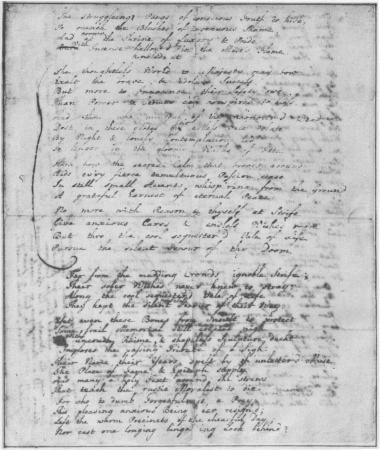 The struggleing Pangs of conscious Truth to hide,
To quench the Blushes of ingenuous Shame,
And at the Shrine of Luxury & Pride
With Incense hallowd in the Muse's Flame
kindled at
The thoughtless World to Majesty may bow
Exalt the brave, & idolize Success
But more to Innocence their Safety owe
Than Power & Genius e'er conspired to bless
And thou, who mindful of the unhonour'd Dead
Dost in these Notes thy artless Tale relate
By Night & lonely Contemplation led
To linger in the gloomy Walks of Fate
Hark how the sacred Calm, that broods around
Bids ev'ry fierce tumultuous Passion cease
In still small Accents whisp'ring from the Ground
A grateful Earnest of eternal Peace
No more with Reason & thyself at Strife
Give anxious Cares & endless Wishes room
But thro' the cool sequester'd Vale of Life
Pursue the silent Tenour of thy Doom.
Far from the madding Crowd's ignoble Strife;
Their sober Wishes never knew to stray:
Along the cool sequester'd Vale of Life
They kept the silent Tenour of their Way.
Yet even these Bones from Insult to protect
Some frail Memorial still erected nigh
With uncouth Rhime, & shapeless Sculpture deckt
Implores the passing Tribute of a Sigh.
Their Name, their Years, spelt by th' unletter'd Muse
The Place of Fame, & Epitaph supply
And many a holy Text around she strews
That teach the rustic Moralist to die.
For who to dumb Forgetfulness, a Prey,
This pleasing anxious Being e'er resign'd;
Left the warm Precincts of the chearful Day,
Nor cast one longing lingring Look behind?